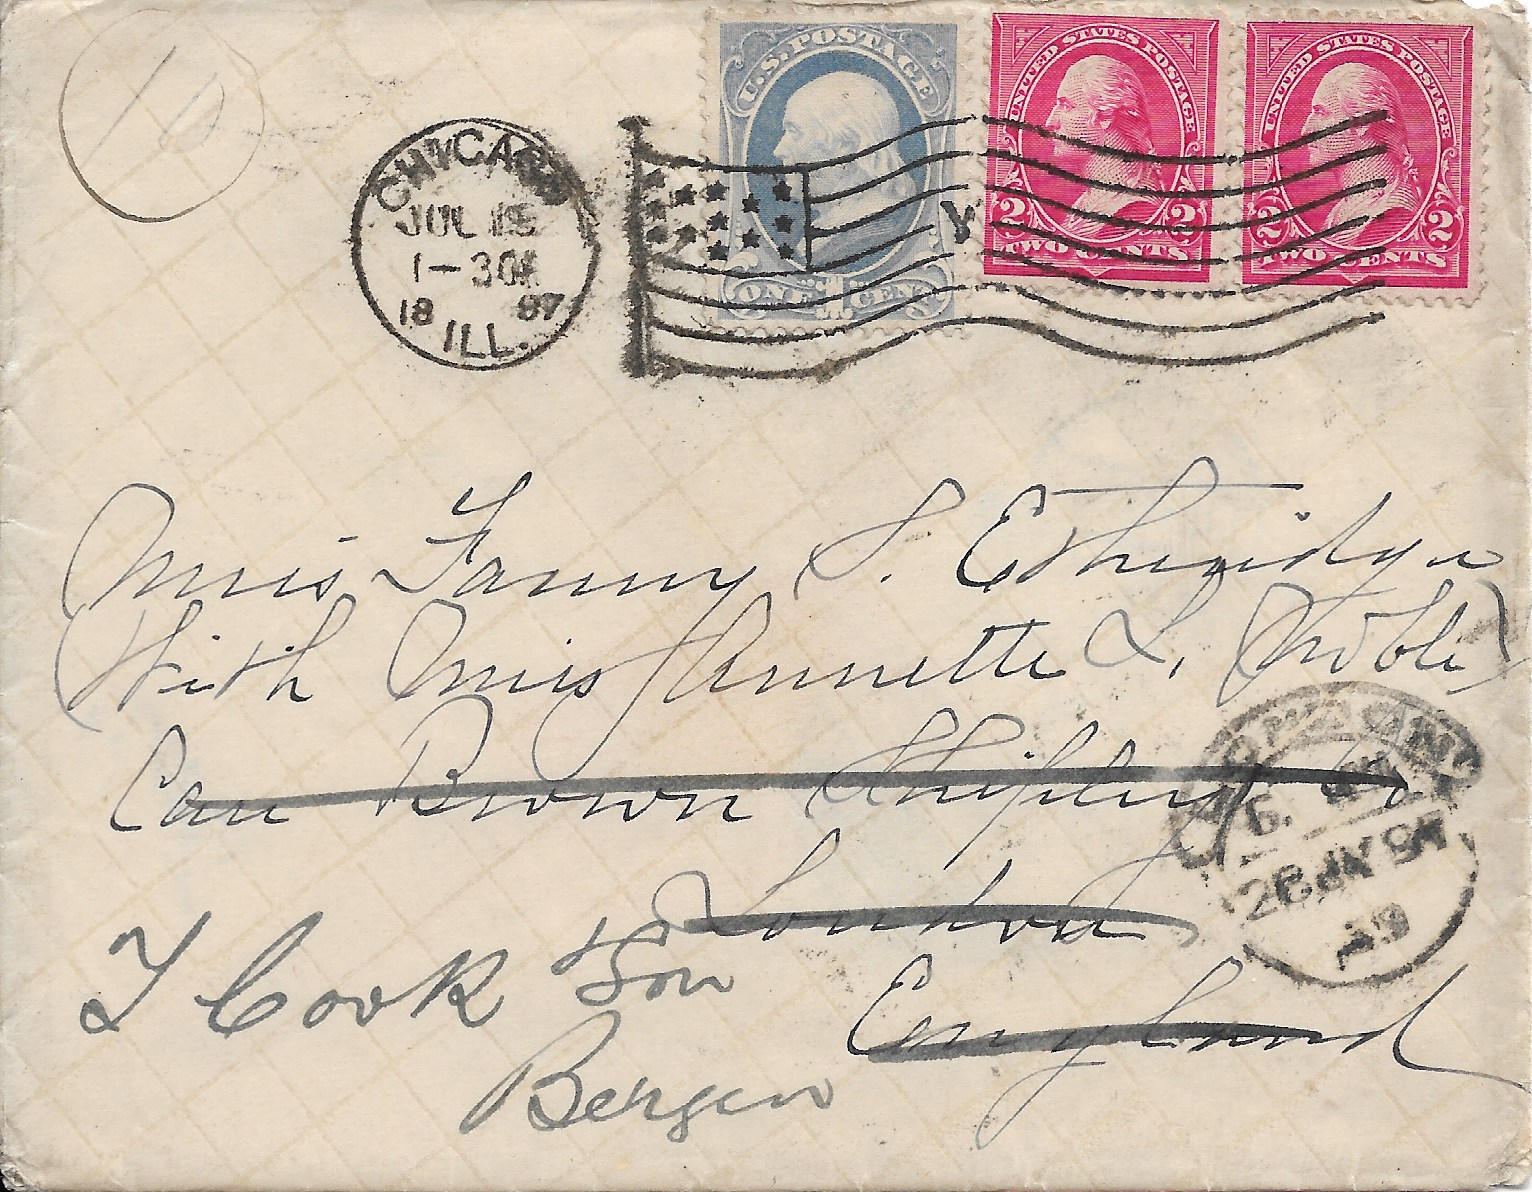 10
U.S. POSTAGE
ONE 1 CENT
UNITED STATES POSTAGE
2 2
TWO CENTS
UNITED STATES POSTAGE
2 2
TWO CENTS
CHICAGO
JUL
1-30
18 97
ILL.
Miss Fanny S. Etheridge
With Miss Annette L. Noble
Care Brown Shipley & Co
London
England
T Cook & Son
Bergen
26 JY 97